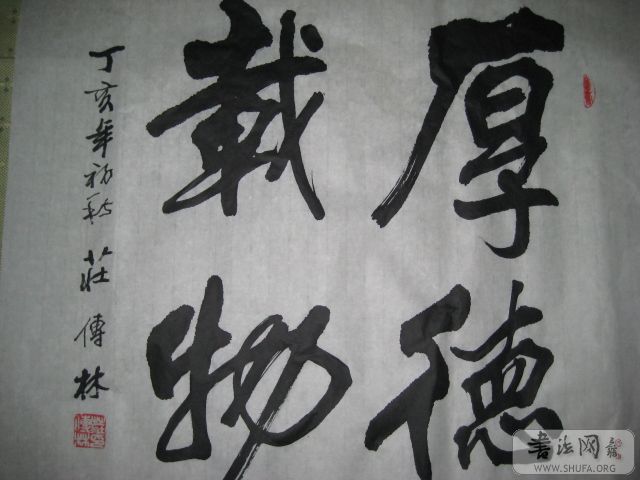 厚德
載物
丁亥年初秋 莊傳林
书法网
WWW.SHUFA.ORG